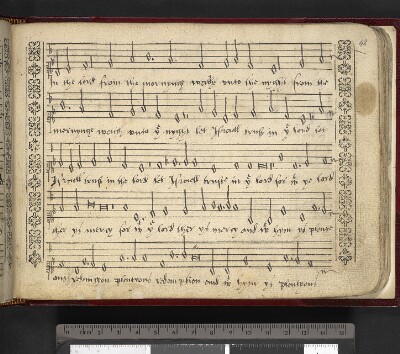 In the lord from the mornynge watche unto the nyght from the
mornynge watch unto yͤ nyght let Israell trust in yͤ lord for
Israell trust in the lord let Israell truste in yͤ lord for yͤ lord
ther ys mercy for wͭ yͤ lord ther ys mercy and wͭ hym ys plente
ous redemtion plenteous redemption and wͭ hym ys plenteous